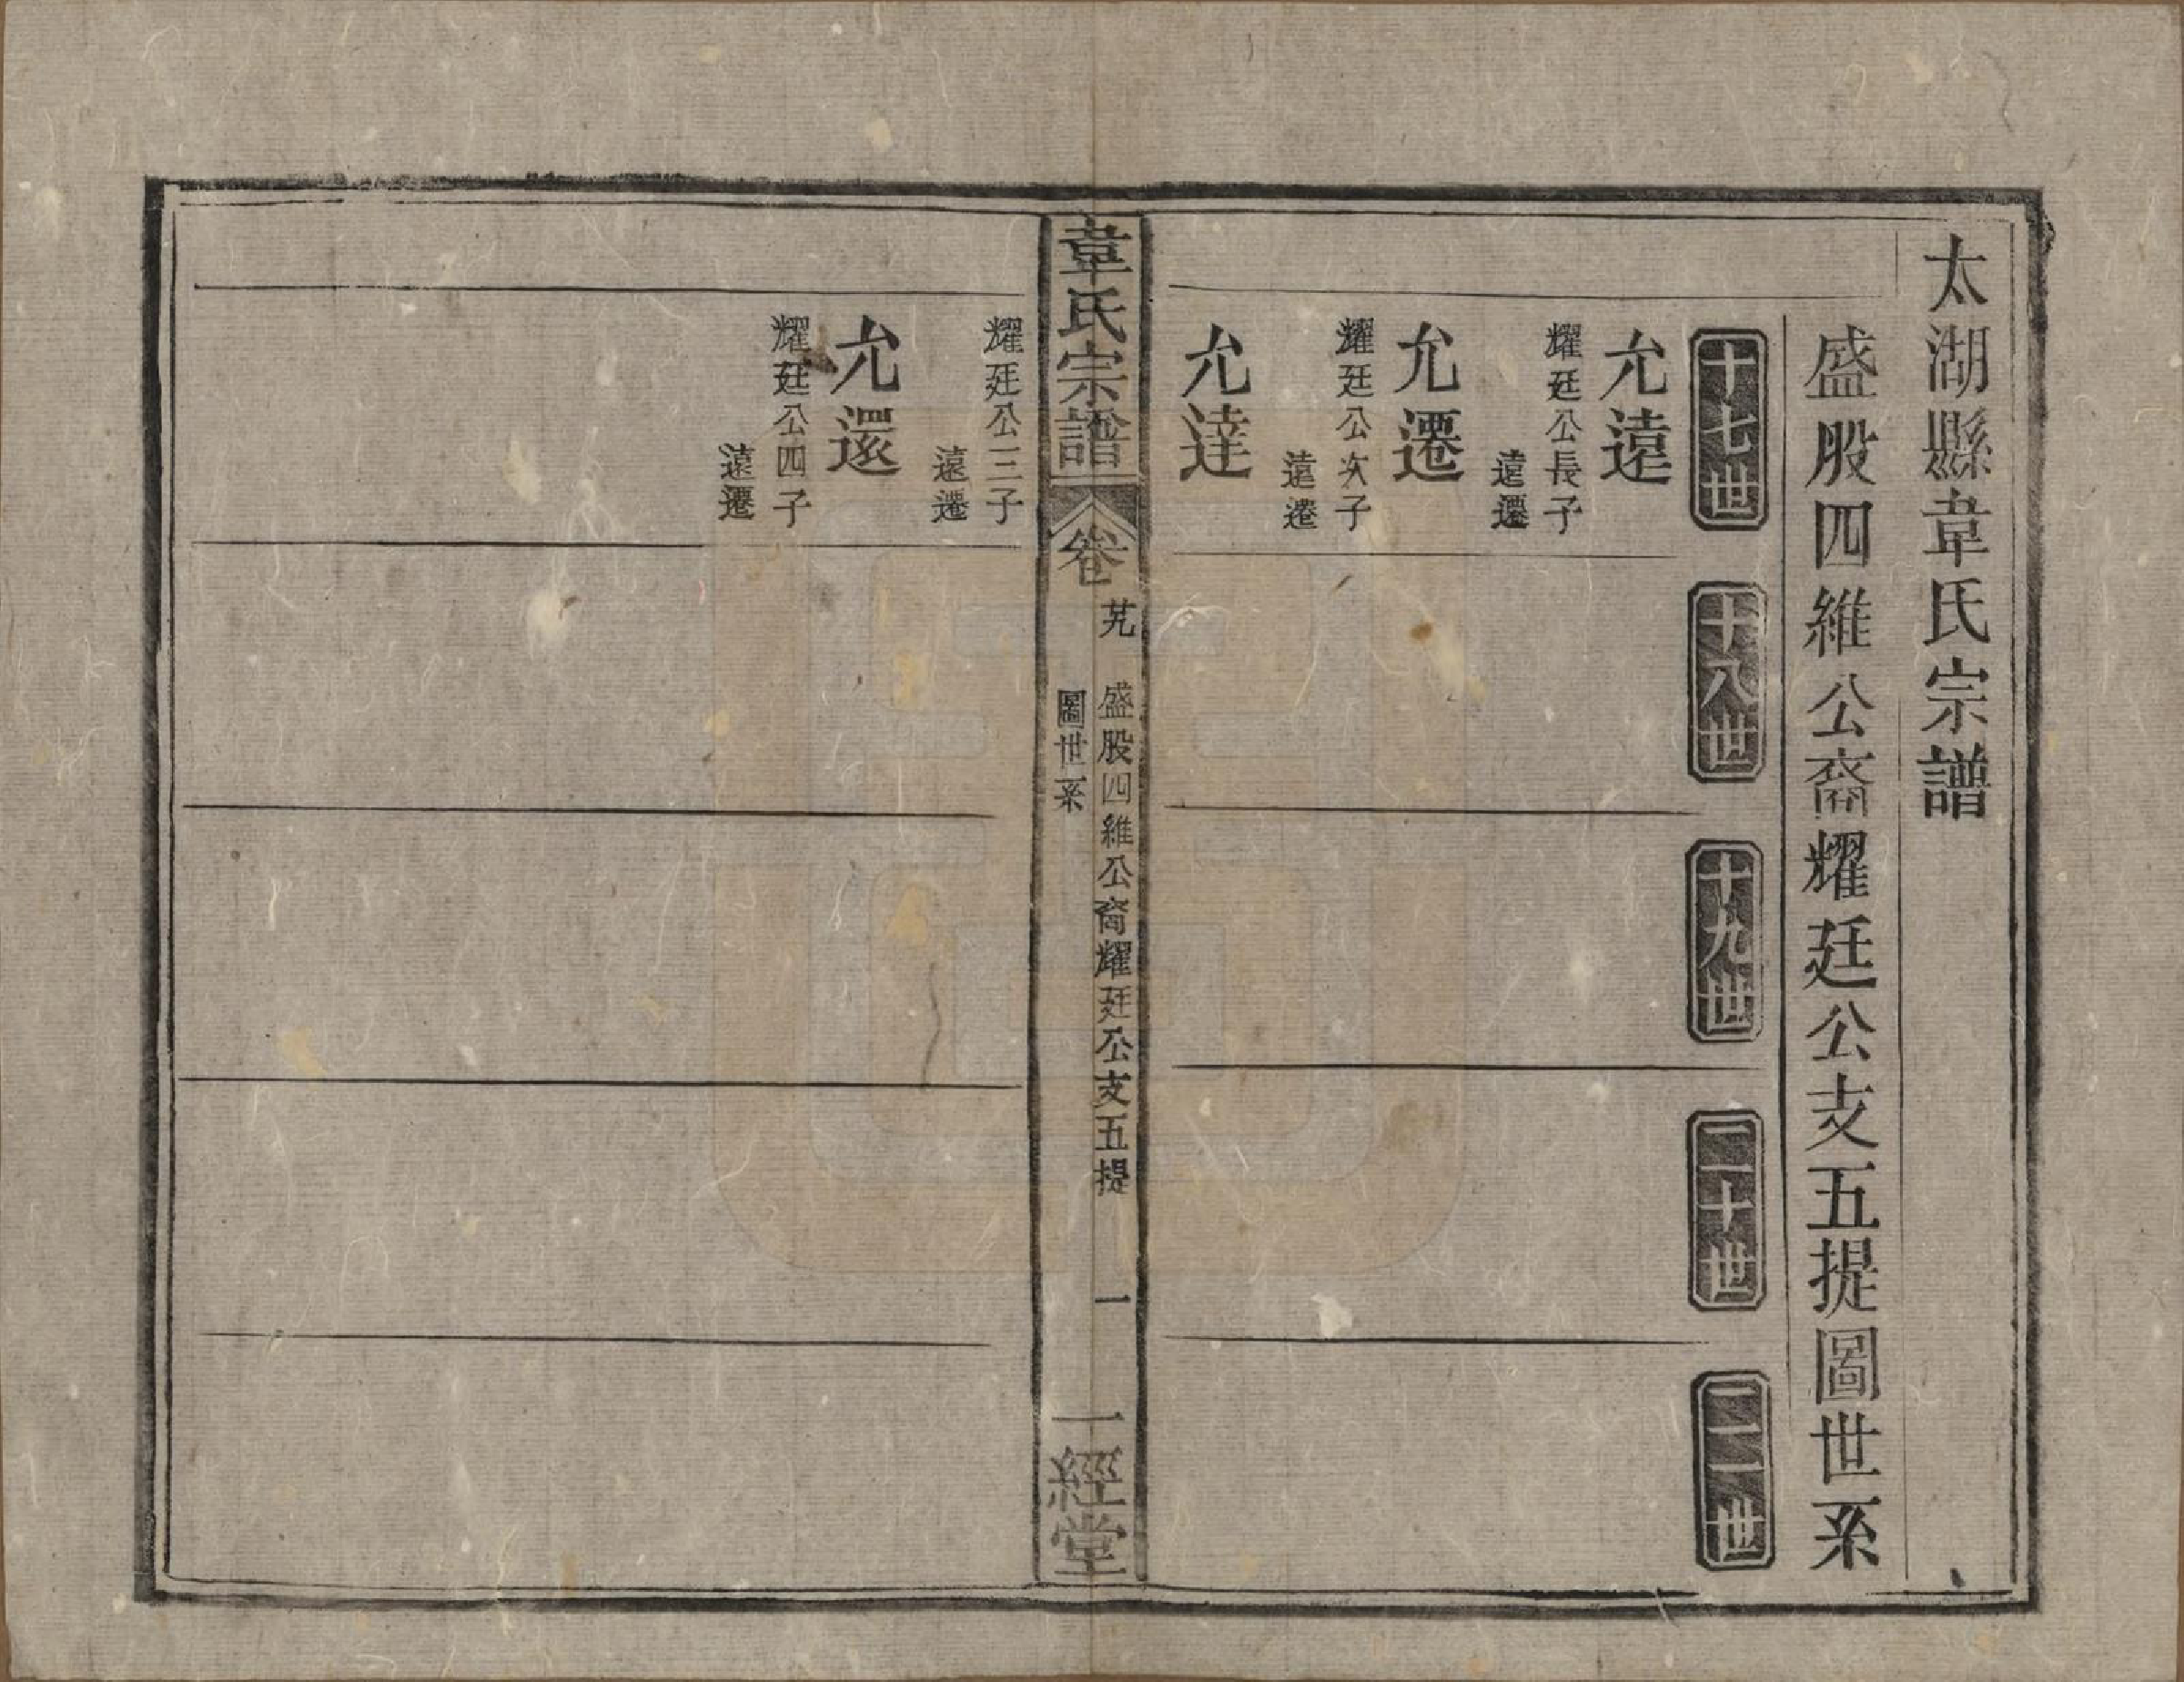 太湖縣韋氏宗譜
盛股四維公裔耀廷公支五提圖世系
十七世
十八世
十九世
二十世
二一世
允遠
耀廷公長子
遠遷
允遷
耀廷公次子
遠遷
允達
韋氏宗譜
卷
盛股四維公裔耀廷公支五提
圖世系
一
一經堂
耀廷公三子
遠遷
允還
耀廷公四子
遠遷